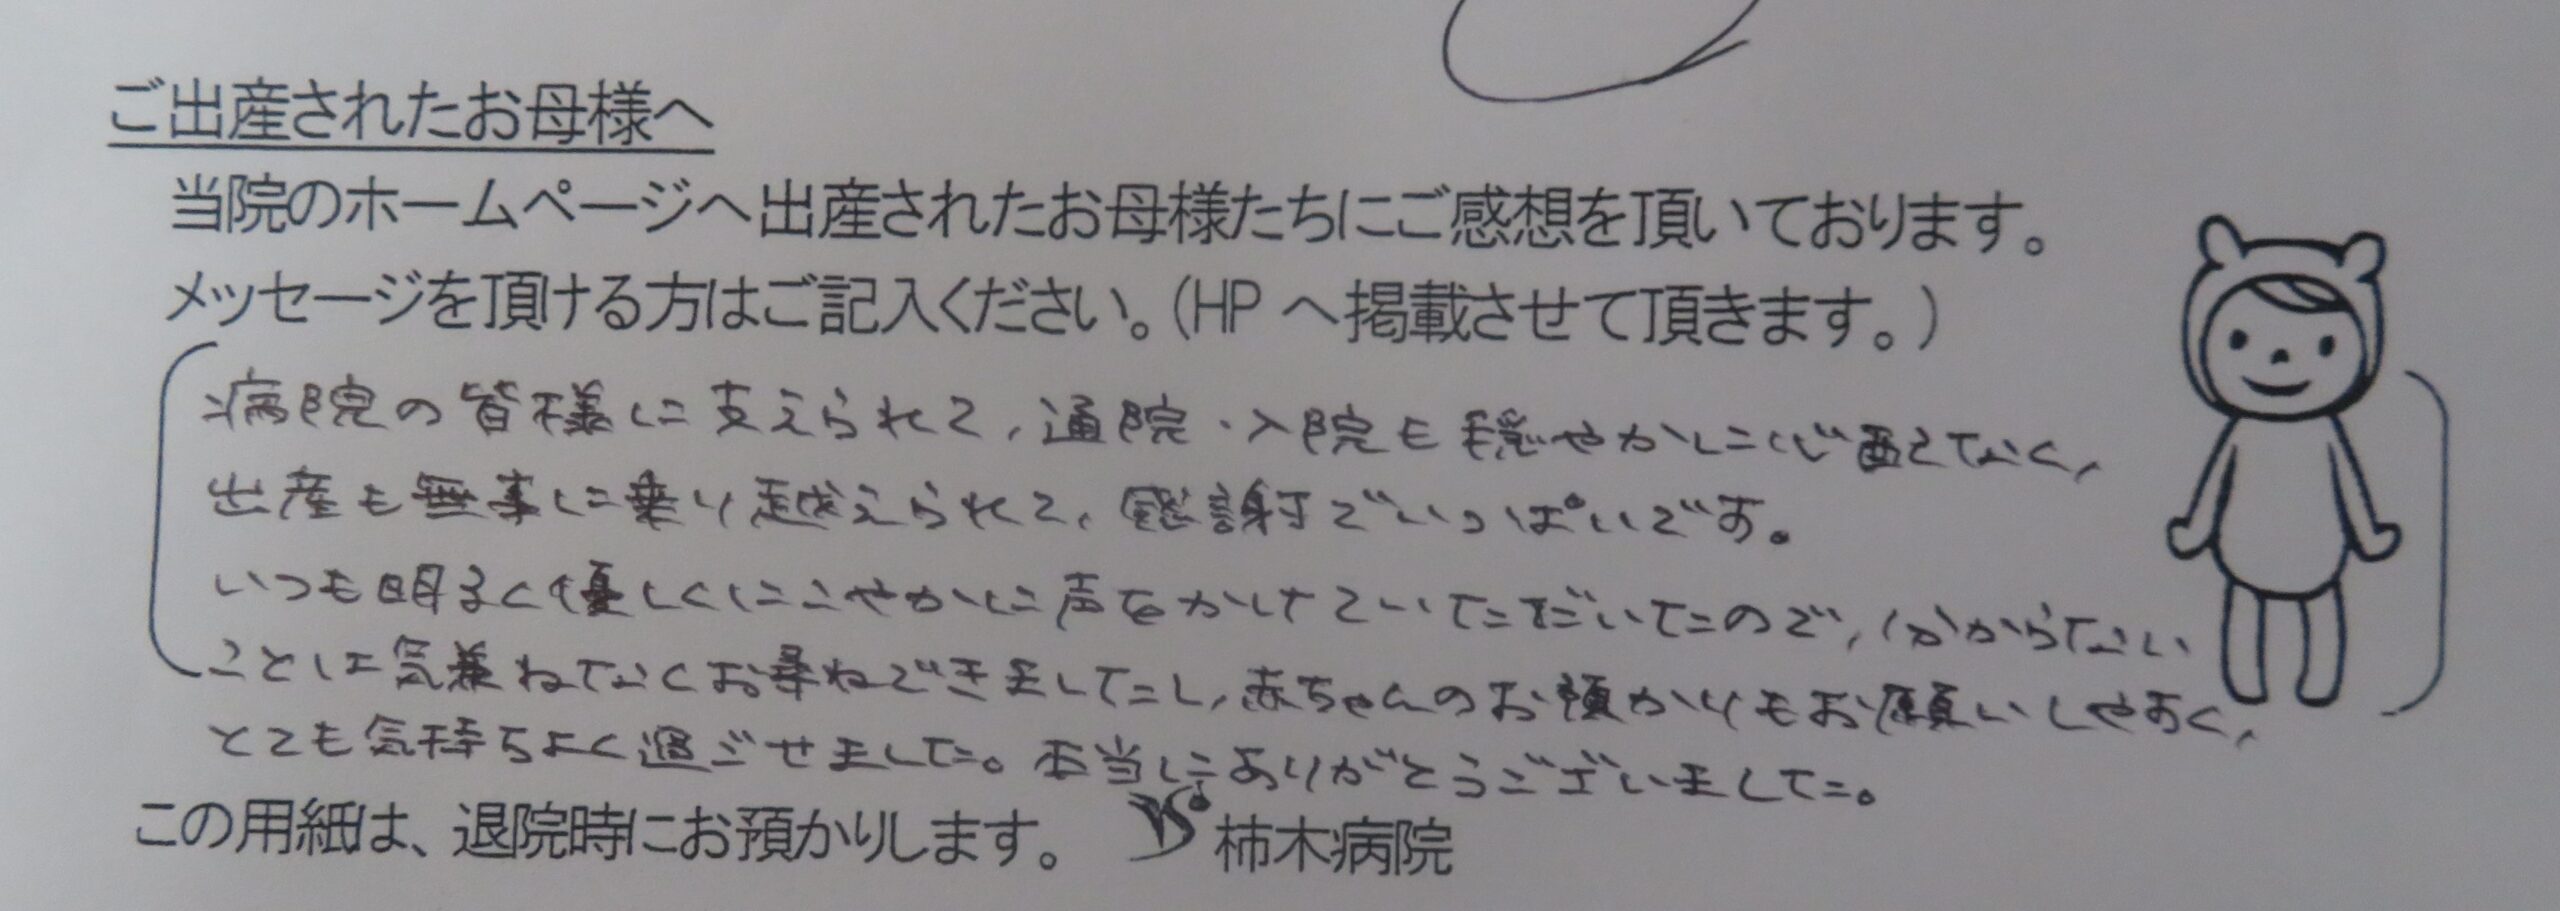 ご出産されたお母様へ
当院のホームページへ出産されたお母様たちにご感想を頂いております。
メッセージを頂ける方はご記入ください。(HP へ掲載させて頂きます。)
病院の皆様に支えられて、通院・入院も穏やかに心配なく、
出産も無事に乗り越えられて、感謝でいっぱいです。
いつも明るく優しくにこやかに声をかけていただいたので、分からない
ことは気兼ねなくお尋ねできましたし、赤ちゃんのお預かりもお願いしやすく、
とても気持ちよく過ごせました。本当にありがとうございました。
この用紙は、退院時にお預かりします。 柿木病院